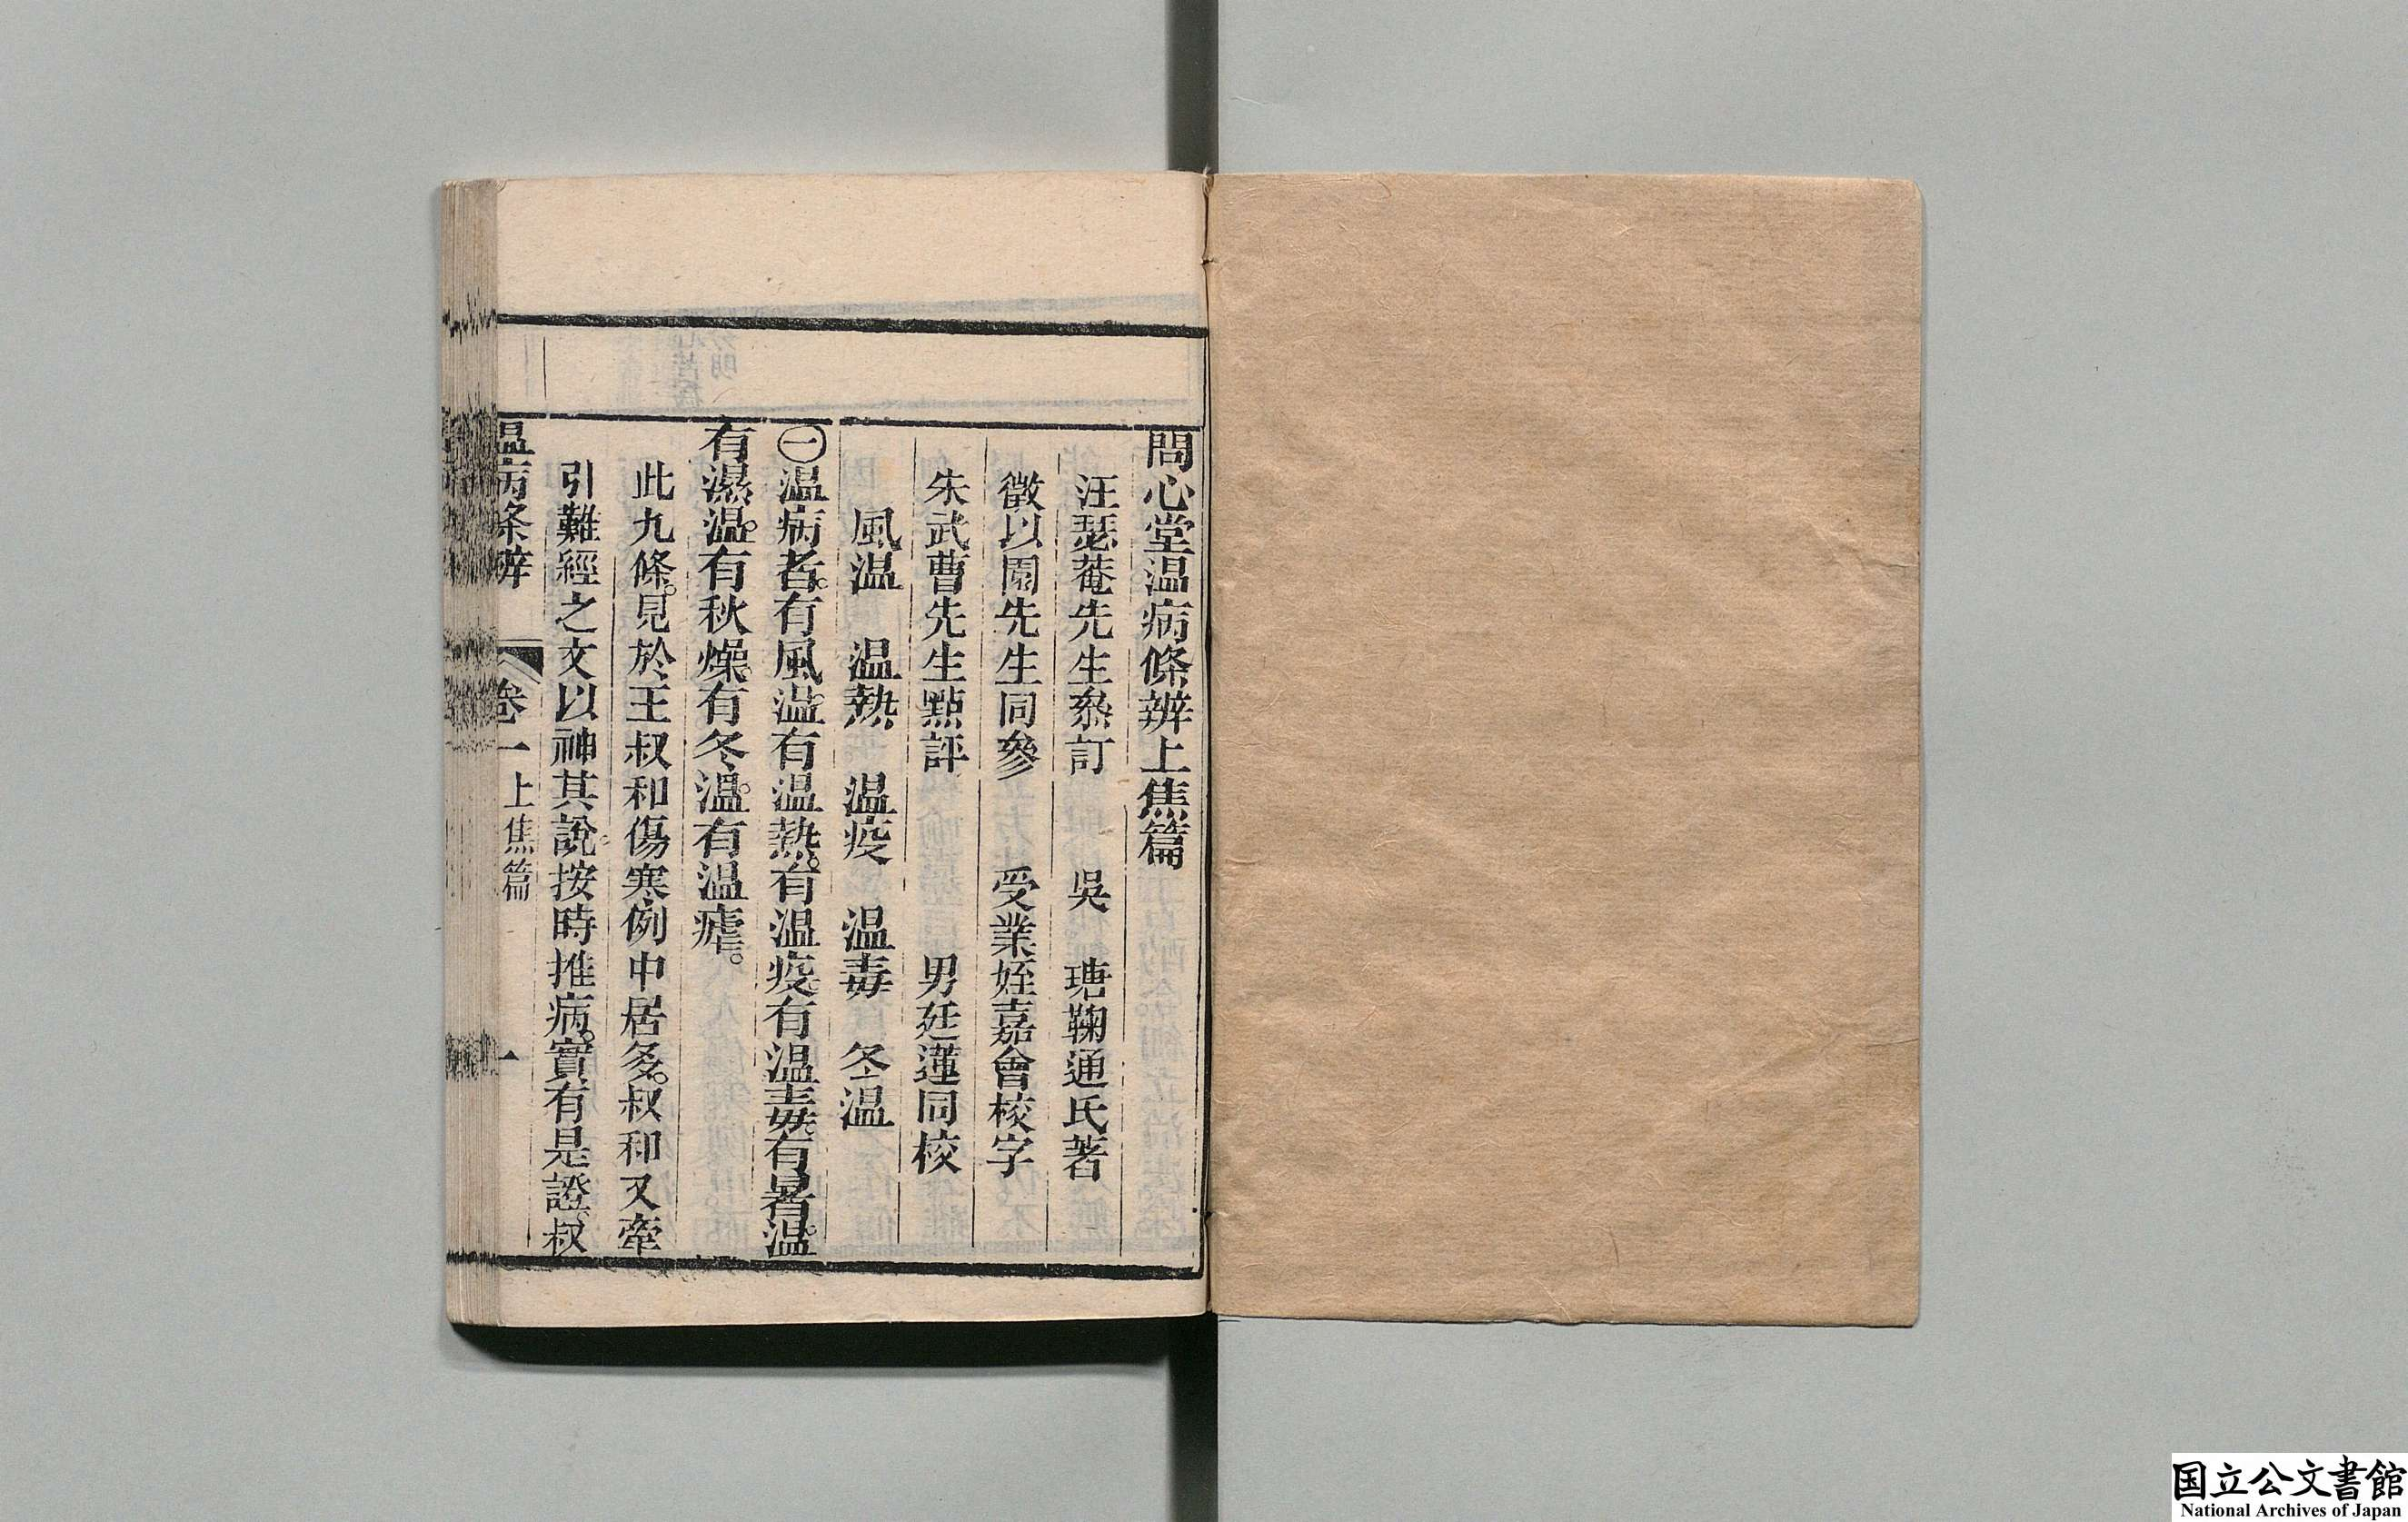 問心堂温病條辨上焦篇
汪瑟菴先生叅訂　吳　瑭鞠通氏著
徵以園先生同參　受業姪嘉會校字
朱武曹先生點評　男廷蓮同校
風温　温熱　温疫　温毒　冬温
㊀温病者。有風温。有温熱。有温疫。有温毒。有暑温。
有濕温。有秋燥。有冬温。有温瘧。
此九條。見於王叔和傷寒例中居多。叔和又牽
引難經之文以神其說。按時推病。實有是證。叔
温病条辨　卷一　上焦篇　一
国立公文書館
National Archives of Japan